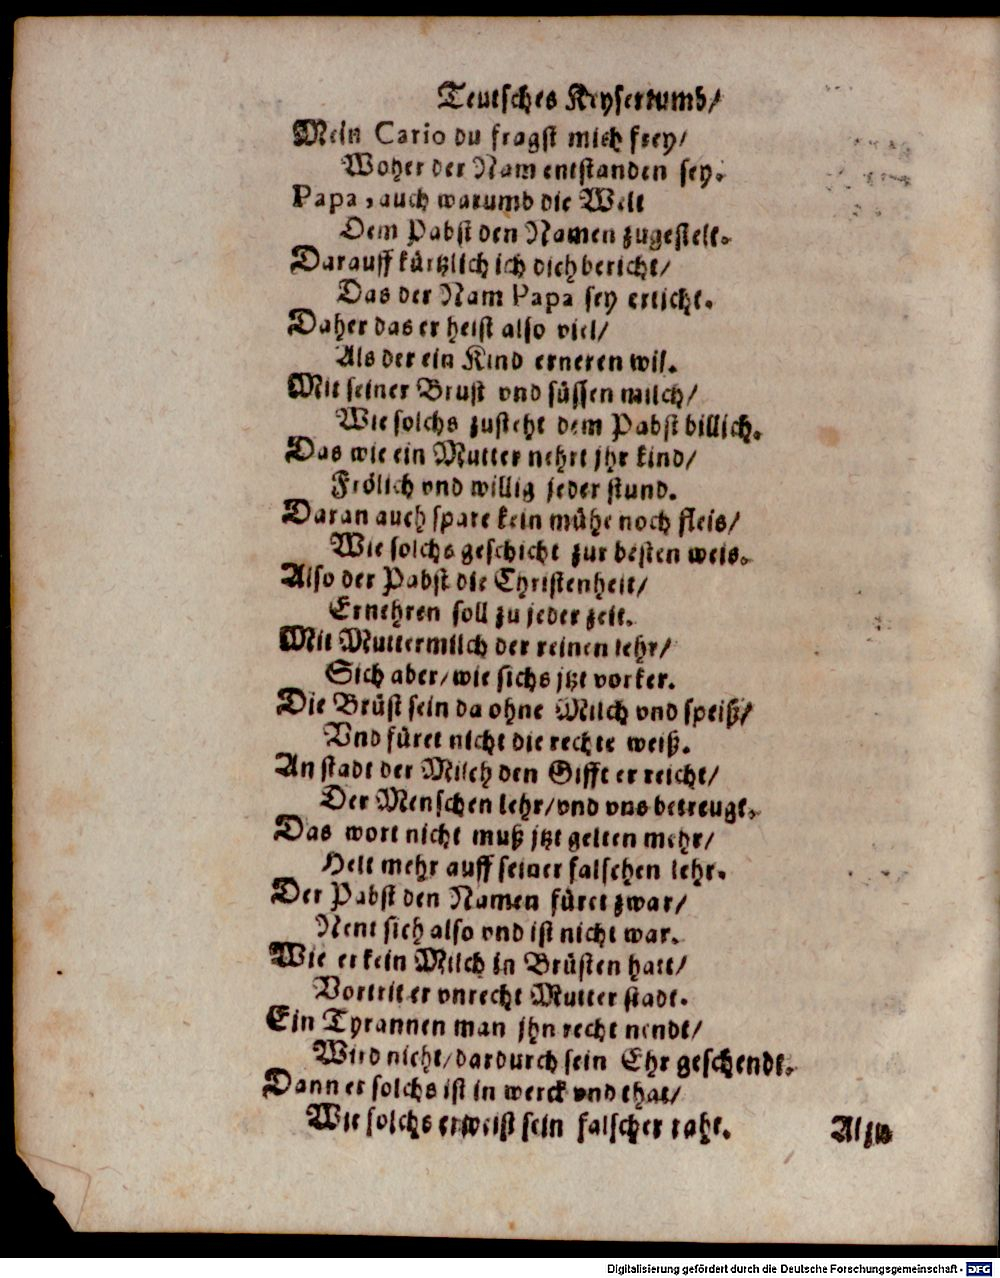 Teutsches Keysertumb/
Mein Cario du fragst mich frey/
Woher der Nam entstanden sey.
Papa, auch warumb die Welt
Dem Pabst den Namen zugestelt.
Darauff kürtzlich ich dich bericht/
Das der Nam Papa sey erticht.
Daher das er heist also viel/
Als der ein Kind erneren wil.
Mit seiner Brust vnd süssen milch/
Wie solchs zusteht dem Pabst billich.
Das wie ein Mutter nehrt jhr kind/
Frölich vnd willig jeder stund.
Daran auch spare kein mühe noch fleis/
Wie solchs geschicht zur besten weis.
Also der Pabst die Christenheit/
Ernehren soll zu jeder zeit.
Mit Muttermilch der reinen lehr/
Sich aber/wie sichs jtzt vorker.
Die Brüst sein da ohne Milch vnd speiß/
Vnd füret nicht die rechte weiß.
An stadt der Milch den Gifft er reicht/
Der Menschen lehr/vnd vns betreugt.
Das wort nicht muß jtzt gelten mehr/
Helt mehr auff seiner falschen lehr.
Der Pabst den Namen füret zwar/
Nent sich also vnd ist nicht war.
Wie er kein Milch in Brüsten hatt/
Vortrit er vnrecht Mutter stadt.
Ein Tyrannen man jhn recht nendt/
Wird nicht/dardurch sein Ehr geschendt.
Dann er solchs ist in werck vnd that/
Wie solchs erweist sein falscher raht.
Alzu
Digitalisierung gefördert durch die Deutsche Forschungsgemeinschaft - DFG